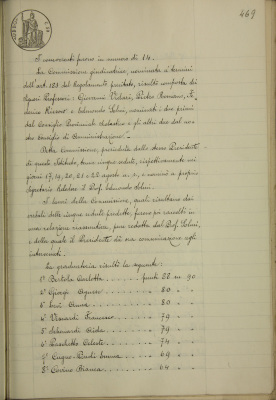 469
I concorrenti furono in numero di 14.
La Commissione giudicatrice, nominata a termini
dell'art. 121 del Regolamento predetto, risultò composta dai
Signori Professori: Giovanni Vidari, Pietro Romano, F
Rosario e Edmondo Solmi, nominati i due primi
dal Consiglio Provinciale Scolastico e gli altri due dal no-
stro Consiglio di Amministrazione.
Detta Commissione, presieduta dallo stesso Presidente
di questo Istituto, tenne cinque sedute, rispettivamente nei
giorni 17, 19, 20, 21 e 22 agosto u. s., e nominò a proprio
Segretario relatore il Prof. Edmondo Solmi.
I lavori della Commissione, quali risultano dai
verbali delle cinque sedute predette, furono poi raccolti in
una relazione riassuntiva, pure redatta dal Prof. Solmi,
e della quale il Presidente dà ora comunicazione agli
intervenuti.
La graduatoria risultò la seguente:
1º Bertola Carlotta punti 82 su 90
2º Giorgi Agnese 80 "
3º Gianna 80 "
4º Visnardi Francesco 79 "
5º Giulia 79 "
6º Paschetto Celeste 74 "
7º Emma 69 "
8º Bianca 64 "